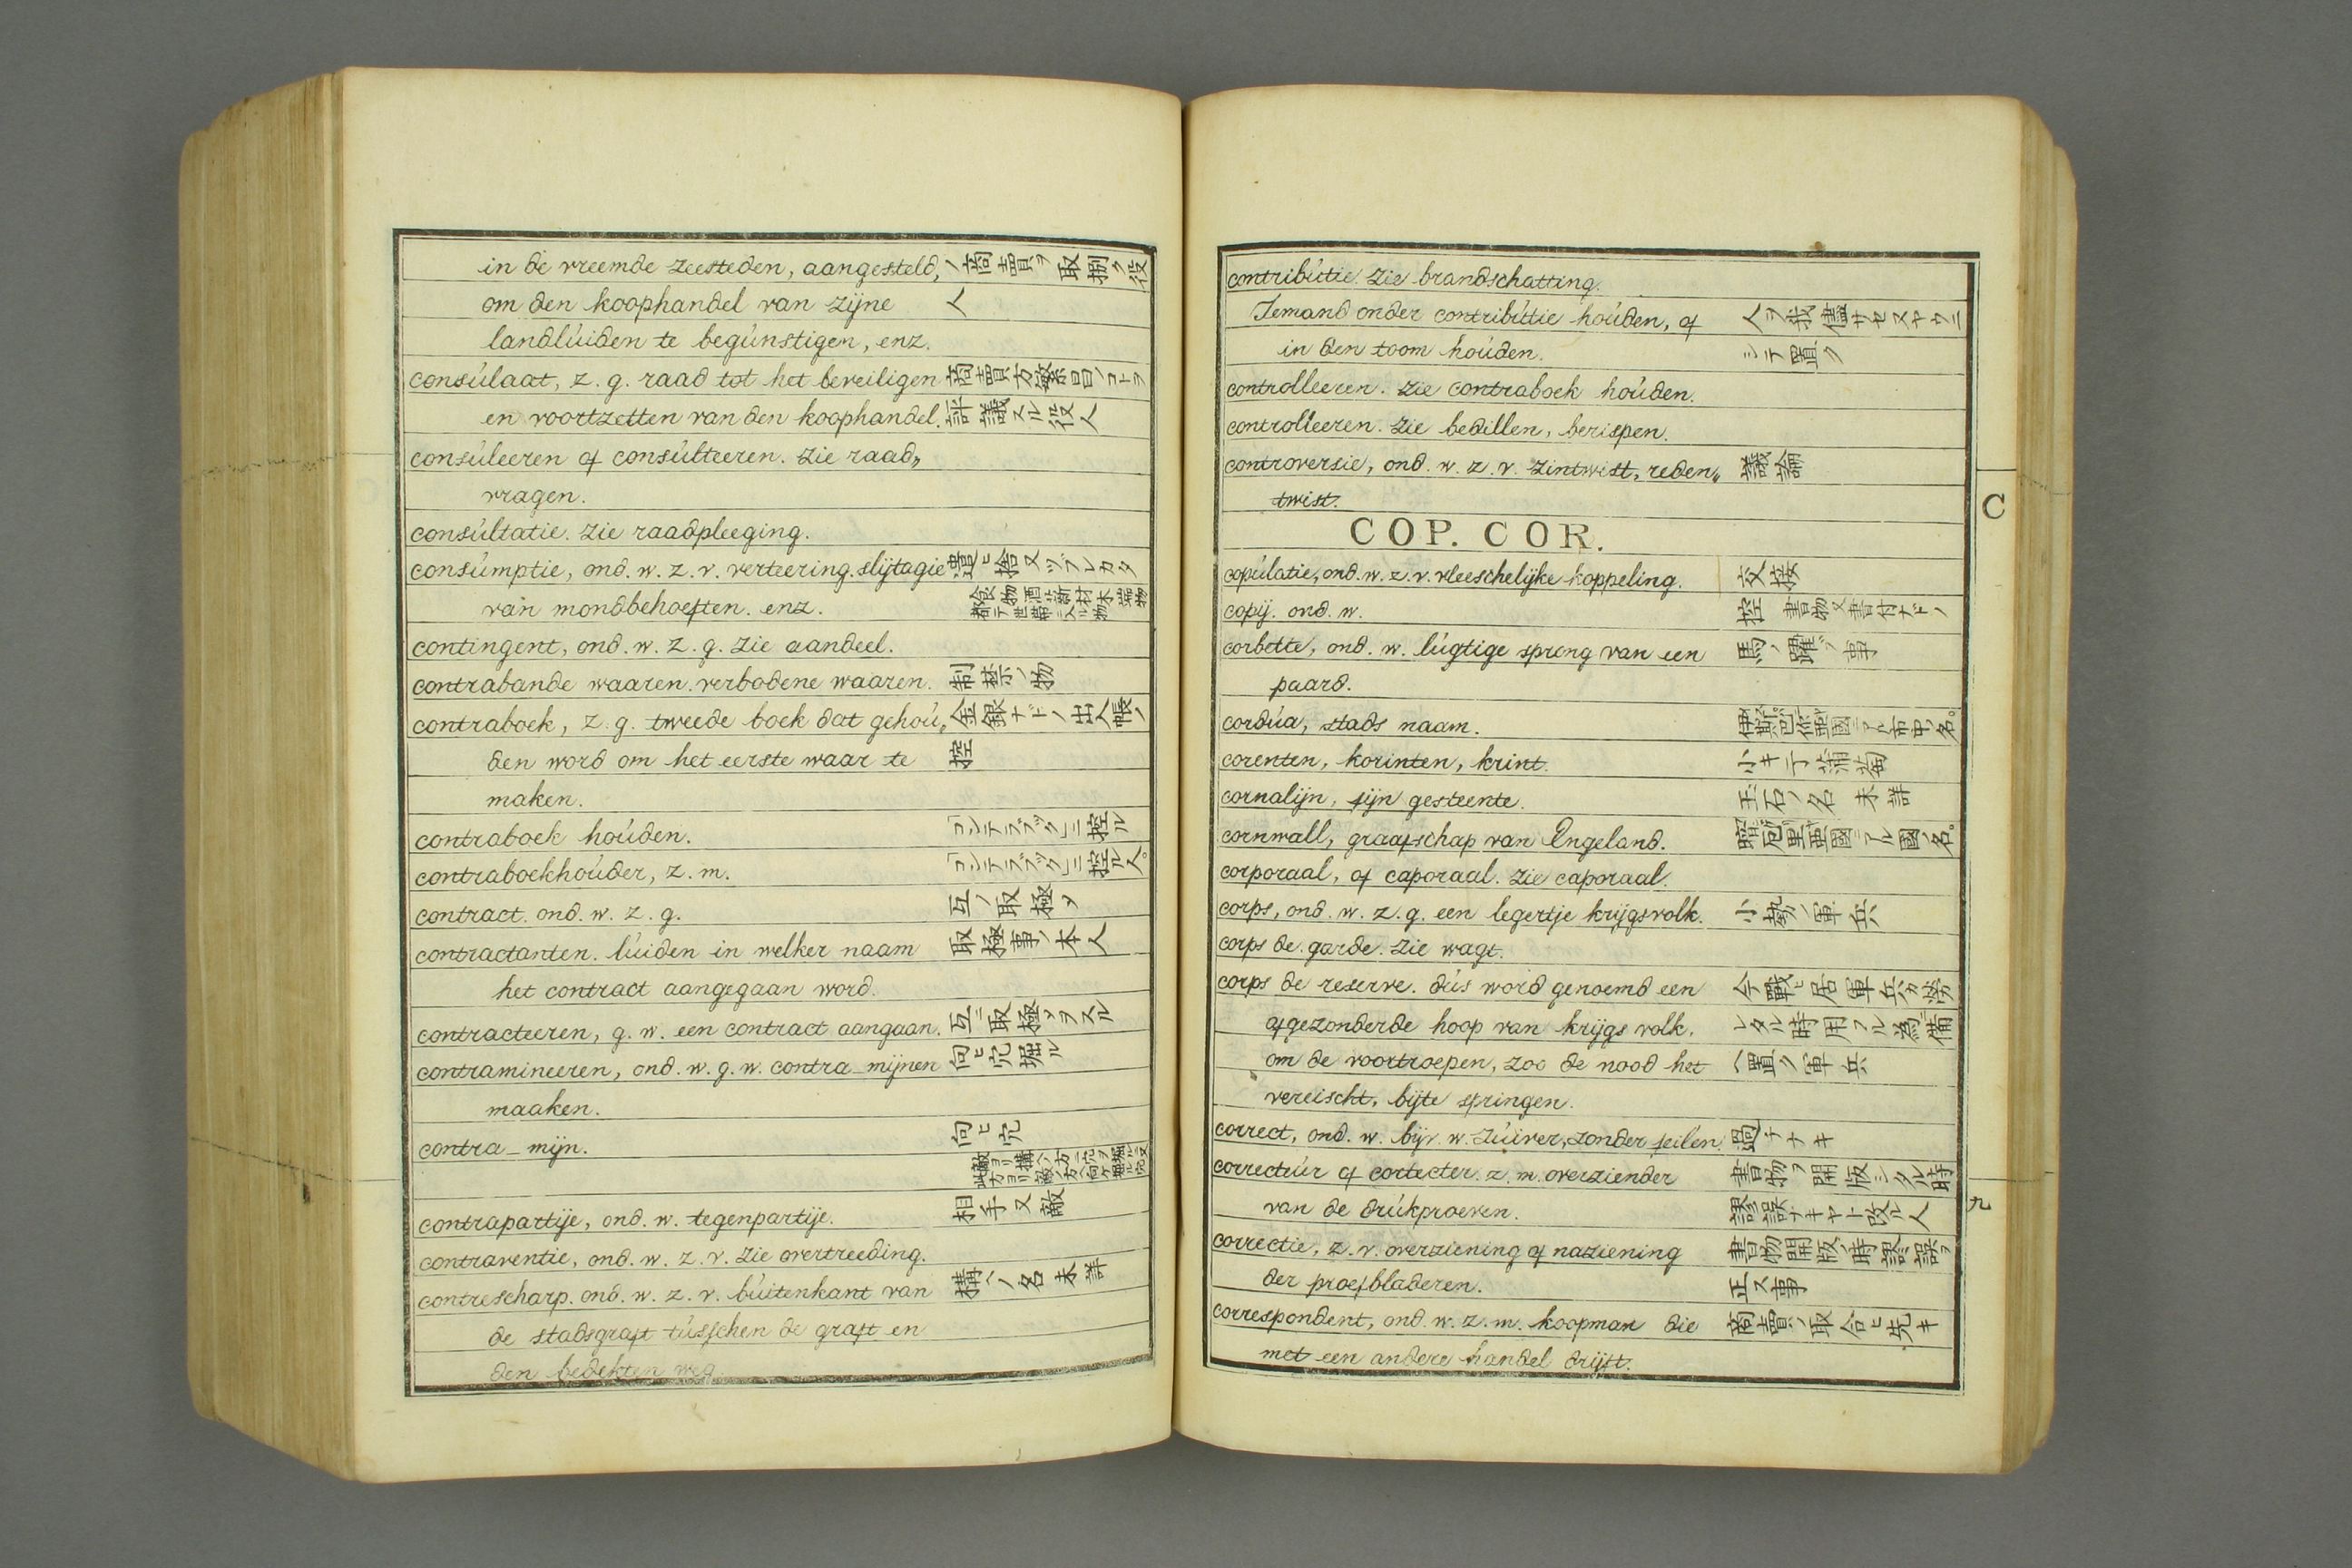 in de vreemde zeesteden, aangesteld, ノ商賣ヲ取捌ク役
om den koophandel van zijne 人
landlúiden te begúnstigen, enz.
consúlaat, z. g. raad tot het beveiligen 商賣方繁昌ノコトヲ
en voortzetten van den koophandel. 評議スル役人
consúleeren of consúlteeren. zie raad„
vragen.
consúltatie. zie raadpleeging.
consúmptie, ond. w. z. v. verteering. slijtagie 遣ヒ捨又ツブレカタ
van mondbehoeften. enz. 食物酒薪材木岩物
contingent, ond. w. z. g. zie aandeel.
contrabande waaren. verbodene waaren. 制禁ノ物
contraboek, z. g. tweede boek dat gehoú„ 金銀ナドノ出入帳ノ
den word om het eerste waar te 控
maken.
contraboek hoúden. 「コンテラブック」ニ控ル
contraboekhoúder, z. m. 「コンテラブック」ニ控ル人。
contract. ond. w. z. g. 互ノ取極メ
contractanten. lúiden in welker naam 取極事ノ本人
het contract aangegaan word.
contracteeren, g. w. een contract aangaan. 互ニ取極メヲスル
contramineeren, ond. w. g. w. contra-mijnen 向ヒ穴堀ル
maaken.
contra-mijn. 向ヒ穴
contrapartije, ond. w. tegenpartije. 相手又敵
contraventie, ond. w. z. v. zie overtreeding.
contrescharp. ond. w. z. v. búitenkant van 構ヘノ名未詳
de stadsgraft tússchen de graft en
den bedekten weg.
contribútie. zie brandschatting.
Iemand onder contribútie hoúden, of 人ヲ我儘サセヌヤウニ
in den toom hoúden. シテ置ク
controlleeren. zie contraboek hoúden.
controlleeren. zie bedillen, berispen.
controversie, ond. w. z. v. zintwist, reden„ 議論
twist.
COP. COR.
copúlatie, ond. w. z. v. vleeschelijke koppeling. 交接
copij. ond. w. 控 書物又書付ナドノ
corbette, ond. w. lúgtige spreng van een 馬ノ躍ブ事
paard.
cordúa, stads naam. 伊斯把你亜國ニアル市中ノ名。
corenten, korinten, krint. 小キ干蒲萄
cornalijn, fijn gesteente. 玉石ノ名 未詳
cornwall, graafschap van Engeland. 諳厄里亜國ニアル國ノ名。
corporaal, of caporaal. zie caporaal.
corps, ond. w. z. g. een legertje krijgsvolk. 小勢ノ軍兵
corps de garde. zie wagt.
corps de reserve. dús word genoemd een 今戰ヒ居軍兵ガ勞
afgezonderde hoop van krijgs volk. レタル時用フル為ニ備
om de voortroepen, zoo de nood het ヘ置ク軍兵
vereischt, bijte springen.
correct, ond. w. bijv. w. zúiver, zonder feilen. 過チナキ
correcteúr of cortecter. z. m. overziender 書物ヲ開版シタル時
van de drúkproeven. 謬誤ナキヤト改ル人
correctie, z. v. overziening of naziening 書物開版ノ時謬誤ヲ
der proefbladeren. 正ス事
correspondent, ond. w. z. m. koopman die 商賣ノ取合ヒ先キ
met een andere handel drijft.
C
九